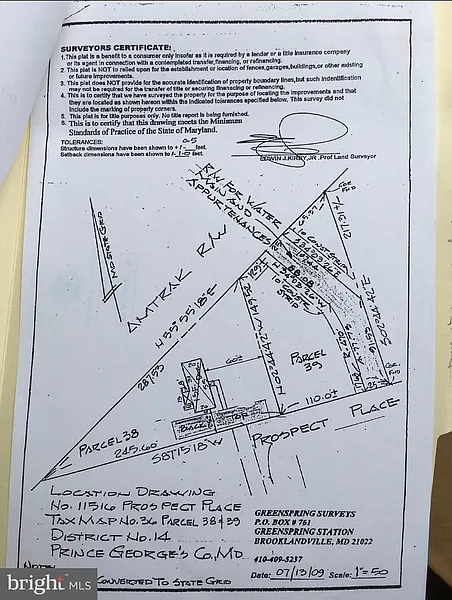 SURVEYORS CERTIFICATE:
1. This plat is a benefit to a consumer only insofar as it is required by a lender or a title insurance company
or its agent in connection with a contemplated transfer, financing, or refinancing.
2. This plat is NOT to relied upon for the establishment or location of fences, garages, buildings, or other existing
or future improvements.
3. This plat does NOT provide for the accurate identification of property boundary lines, but such indentification
may not be required for the transfer of title or securing finanacing or refinancing.
4. This is to certify that we have surveyed the property for the purpose of locating the improvements and that
they are located as shown hereon within the indicated tolerances specified below. This survey did not
include the marking of property corners.
5. This plat is for title purposes only. No title report is being furnished.
6. This is to certify that this drawing meets the Minimum
Standards of Practice of the State of Maryland.
TOLERANCES:
Structure dimensions have been shown to +/- 0.5 feet.
Setback dimensions have been shown to +/- 1.0 feet.
EDWIN J. KIRBY, JR. Prof Land Surveyor
R/W FOR WATER
MAIN AND
APPURTENANCES
AMTRAK R/W
N 55°55'18"E
287.53
PARCEL
39
60±
110.0±
PARCEL 38
245.60
S81°15'18"W
PROSPECT PLACE
LOCATION DRAWING
NO. 11516 PROSPECT PLACE
TAX MAP NO. 36 PARCEL 38 & 39
DISTRICT NO. 14
PRINCE GEORGE'S CO, MD
GREENSPRING SURVEYS
P.O. BOX # 761
GREENSPRING STATION
BROOKLANDVILLE, MD 21022
410-409-5237
Date: 07/13/09 Scale: 1"=50
NOTE:
CONVERTED TO STATE GRID
bright MLS